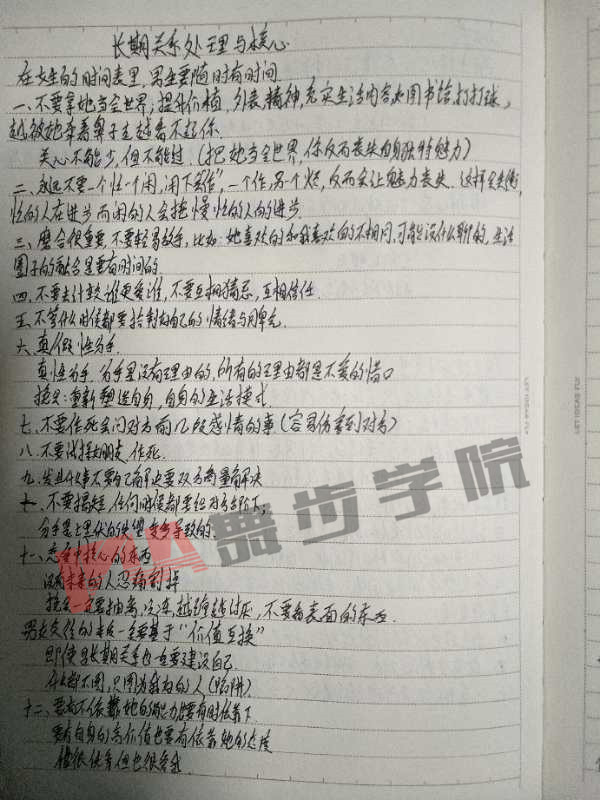 长期关系处理与核心
在女生的时间表里,男生要随时有时间
一、不要拿她当全世界;提升价值,外表,精神,充实生活内容,如图书馆,打打球,
越被她牵着鼻子走越看不起你.
关心不能少,但不能过.(把她当全世界,你反而丧失自身独特魅力)
二、永远不要一个忙一个闲,闲下会"作",一个作,另一个烦,反而会让魅力丧失.这样会失衡,
忙的人在进步而闲的人会拖慢忙的人的进步.
三、磨合很重要,不要轻易放手,比如:她喜欢的和我喜欢的不相同,可能没什么聊的,生活
圈子的融合是要有时间的.
四.不要去计较谁更爱谁,不要互相猜忌,互相信任.
五.不管什么时候都要控制好自己的情绪与用单元.
六.真/假性分手.
真性分手.分手是没有理由的,所有的理由都是不爱的借口
挽回:重新塑造自身,自身的生活模式.
七、不要作死去问对方前几段感情的事(容易伤害到对方)
八.不要试探女朋友,作死.
九.发生什么事不要自己解决要双方商量解决
十、不要揭短,任何时候都要给对方台阶下;
分手是土里伏的失望变多导致的.
十一、恋爱中核心的东西
没有未来的人忍痛割掉
挽回一定要抽离,冷冻,越缠越讨厌,不要看表面的东西.
男女交往的本质一定要基于"价值互换"
即使是长期关系也要建设自己.
什么都不图,只图为我好的人(陷阱)
十二、要有不依靠她的能力也要有时依靠下
要有自身的高价值也要有依靠她的态度
舞步学院
LET IDEAS FLY
LET IDEAS FLY